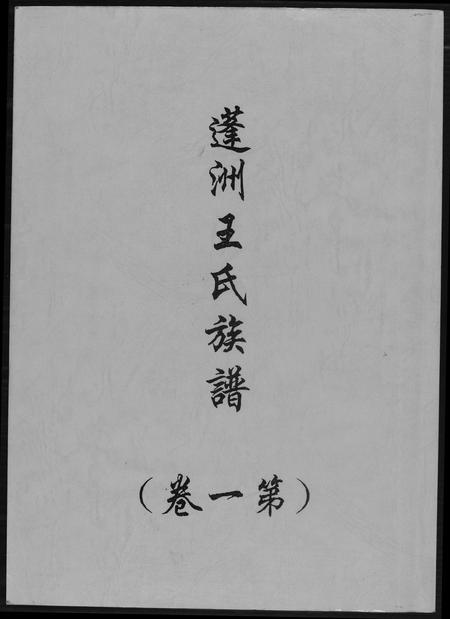 蓬洲王氏族譜
（第一卷）